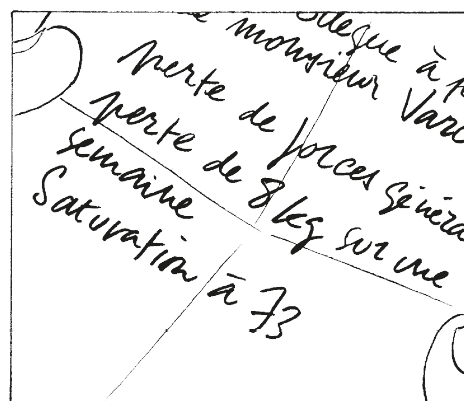 à
monsieur
perte de forces
perte de 8 kg sur une
semaine
Saturation à 73